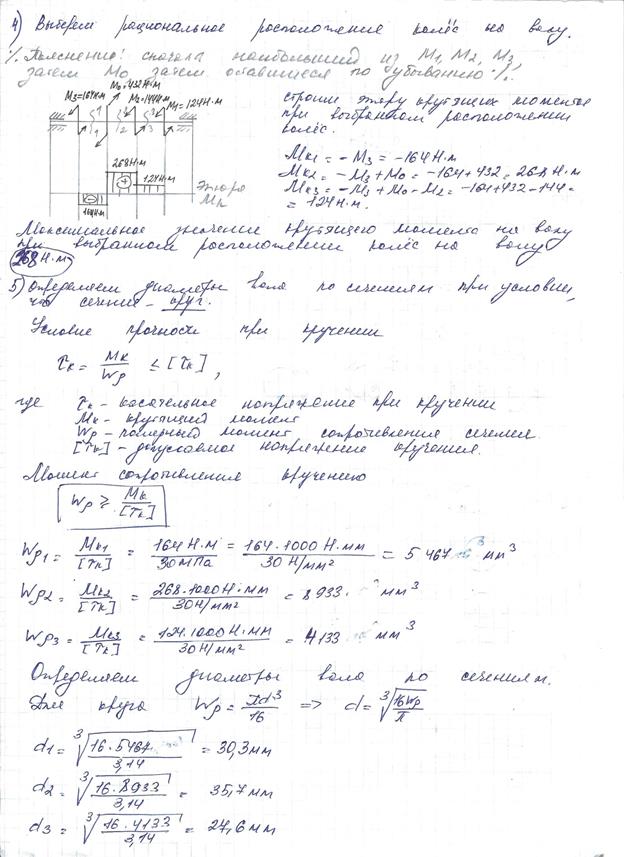 4) Выберем рациональное расположение колёс на валу.
/. Пояснение: сначала наибольший из М1, М2, М3,
затем М0 затем оставшиеся по убыванию ./.
М0=432Н·м
М3=164Н·м М2=144Н·м М1=124Н·м
1 2 3
268Н·м
124Н·м
164Н·м
эпюра
Мк
строим эпюру крутящих моментов
при выбранном расположении
колёс.
Мк1 = -М3 = -164 Н·м
Мк2 = -М3 + М0 = -164+432 = 268 Н·м
Мк3 = -М3 + М0 - М2 = -164+432-144=
= 124 Н·м.
Максимальное значение крутящего момента на валу
при выбранном расположении колёс на валу
268 Н·м
5) определяем диаметры вала по сечениям при условии,
что сечение - круг.
Условие прочности при кручении
τк = Мк/Wp ≤ [τк],
где τк - касательное напряжение при кручении
Мк - крутящий момент
Wp - полярный момент сопротивления сечения.
[τк] - допускаемое напряжение кручения.
Момент сопротивления кручению
Wp ≥ Мк/[τк]
Wp1 = Мк1/[τк] = 164 Н·м/30мПа = 164·1000 Н·мм/30 Н/мм² = 5467 мм³
Wp2 = Мк2/[τк] = 268·1000Н·мм/30Н/мм² = 8933 мм³
Wp3 = Мк3/[τк] = 124·1000Н·мм/30Н/мм² = 4133 мм³
Определяем диаметры вала по сечениям.
Для круга Wp = πd³/16 => d = ³√(16Wp/π)
d1 = ³√(16·5467/3,14) = 30,3мм
d2 = ³√(16·8933/3,14) = 35,7мм
d3 = ³√(16·4133/3,14) = 27,6мм